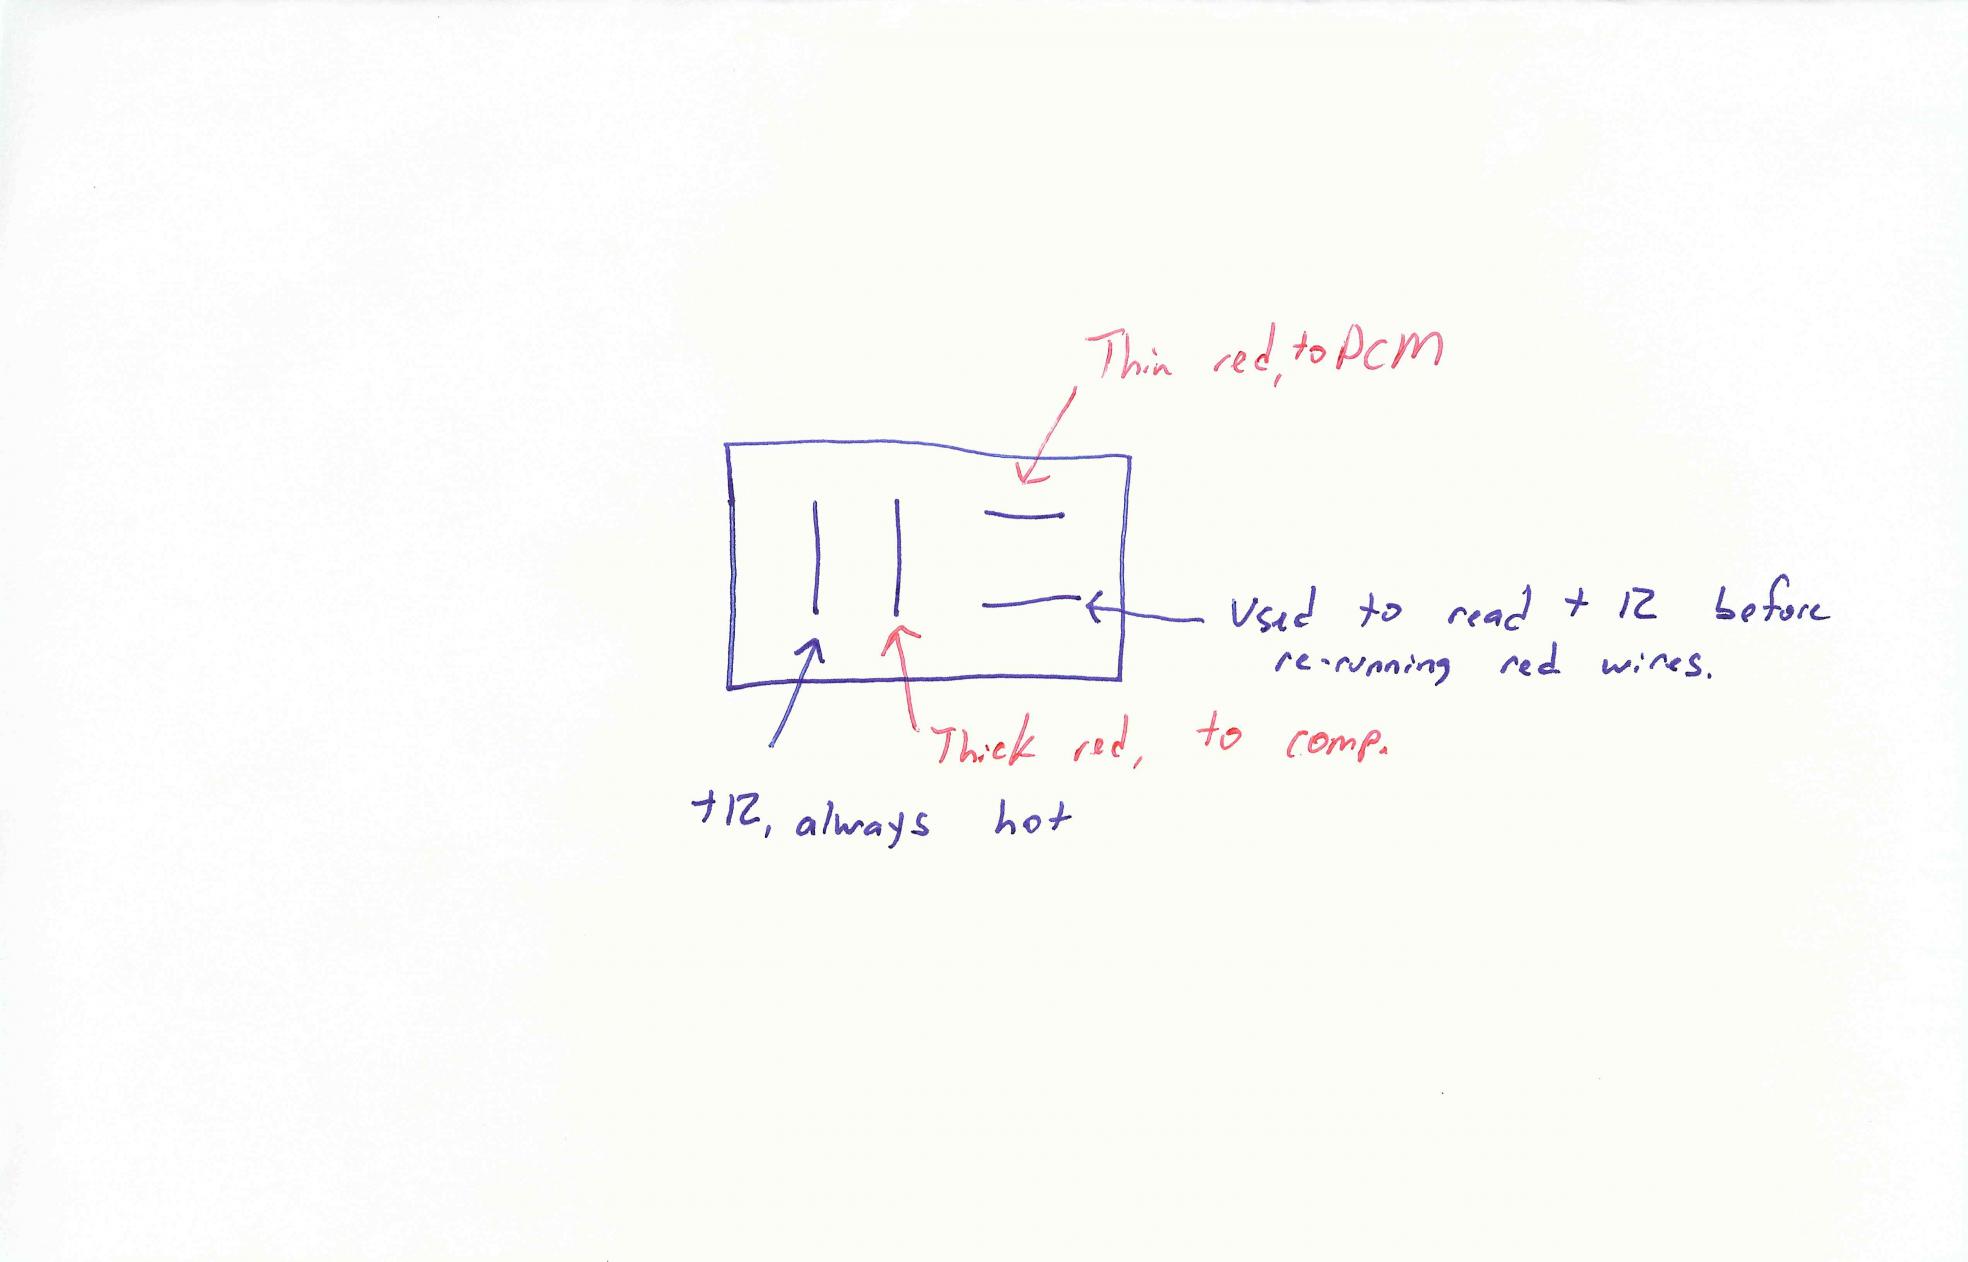 Thin red, to PCM
Used to read + 12 before
re-running red wires.
Thick red, to comp.
+12, always hot